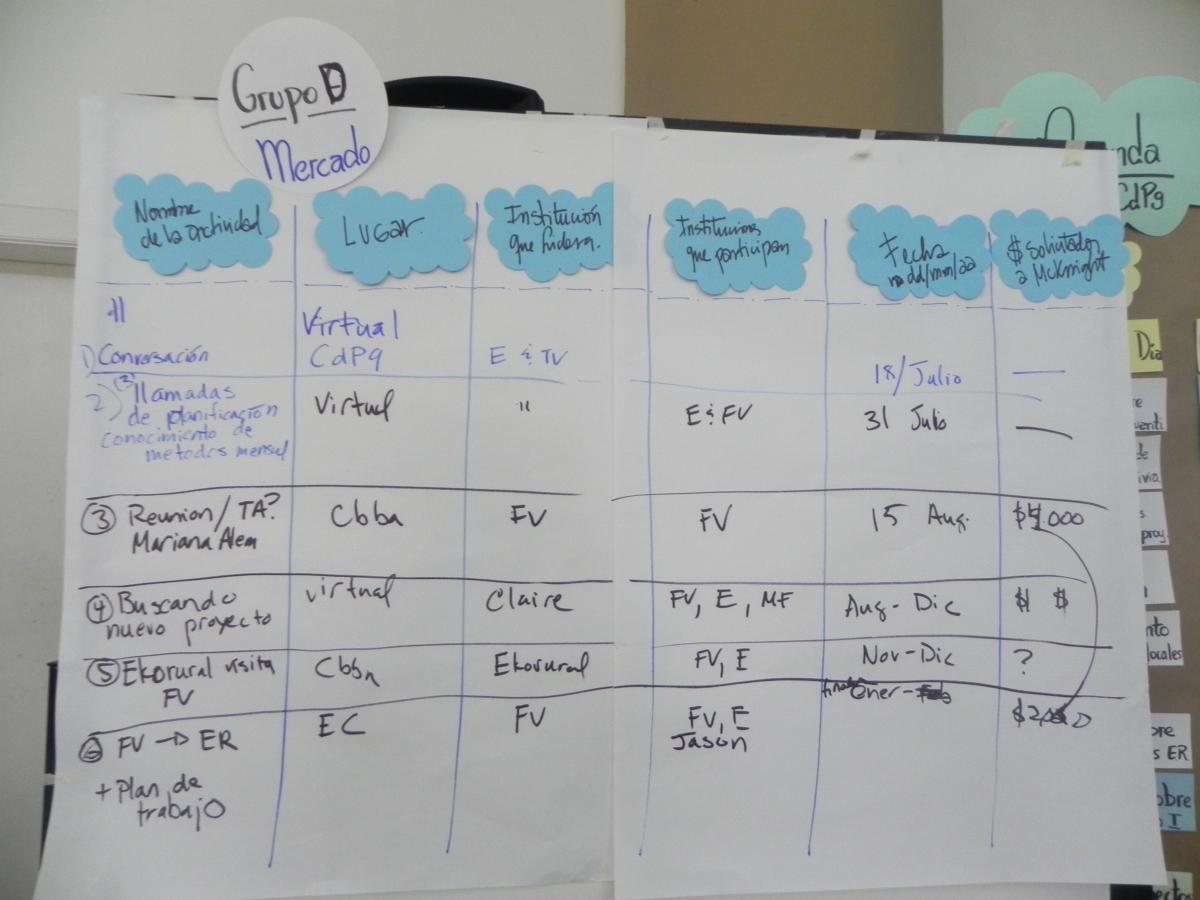 Grupo D
Mercado
Nombre
de la actividad
LUGAR.
Institución
que lidera.
Instituciones
que participan
Fecha
dd/mm/aa
$ solicitados
a McKnight
1) Conversación
Virtual
CdP9
E & TV
18/Julio
2) (3) llamadas
de planificación
conocimiento de
metodos mensul
Virtual
"
E & FV
31 Julio
③ Reunion/TA?
Mariana Alem
Cbba
FV
FV
15 Aug.
④ Buscando
nuevo proyecto
virtual
Claire
FV, E, MF
Aug - Dic
$ $
⑤ Ekorural visita
FV
Cbba
Ekorural
FV, E
Nov-Dic
?
⑥ FV → ER
+ Plan de
trabajo
EC
FV
FV, E
Jason
Ener-
nda
CdP9
Dia